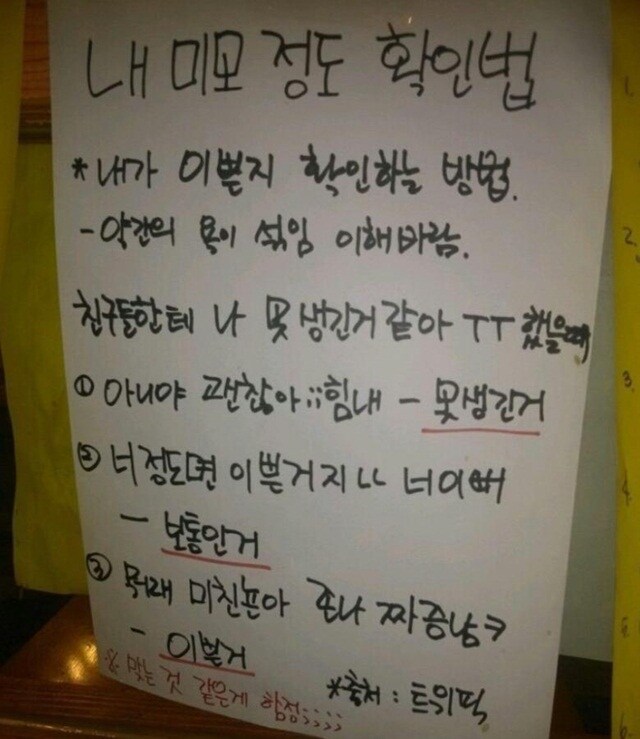 내 미모 정도 확인법
*내가 이쁜지 확인하는 방법.
-약간의 욕이 섞임 이해바람.
친구들한테 나 못생긴거같아 ㅜㅜ 했을때
① 아니야 괜찮아;;힘내 - 못생긴거
② 너정도면 이쁜거지 ㄴㄴ 너이뻐
- 보통인거
③ 뭐래 미친년아 존나 짜증남ㅋ
- 이쁜거
※ 맞는 것 같은게 함정;;;;
*출처 : 트위픽
1.
2.
3.
4.
5.
6.